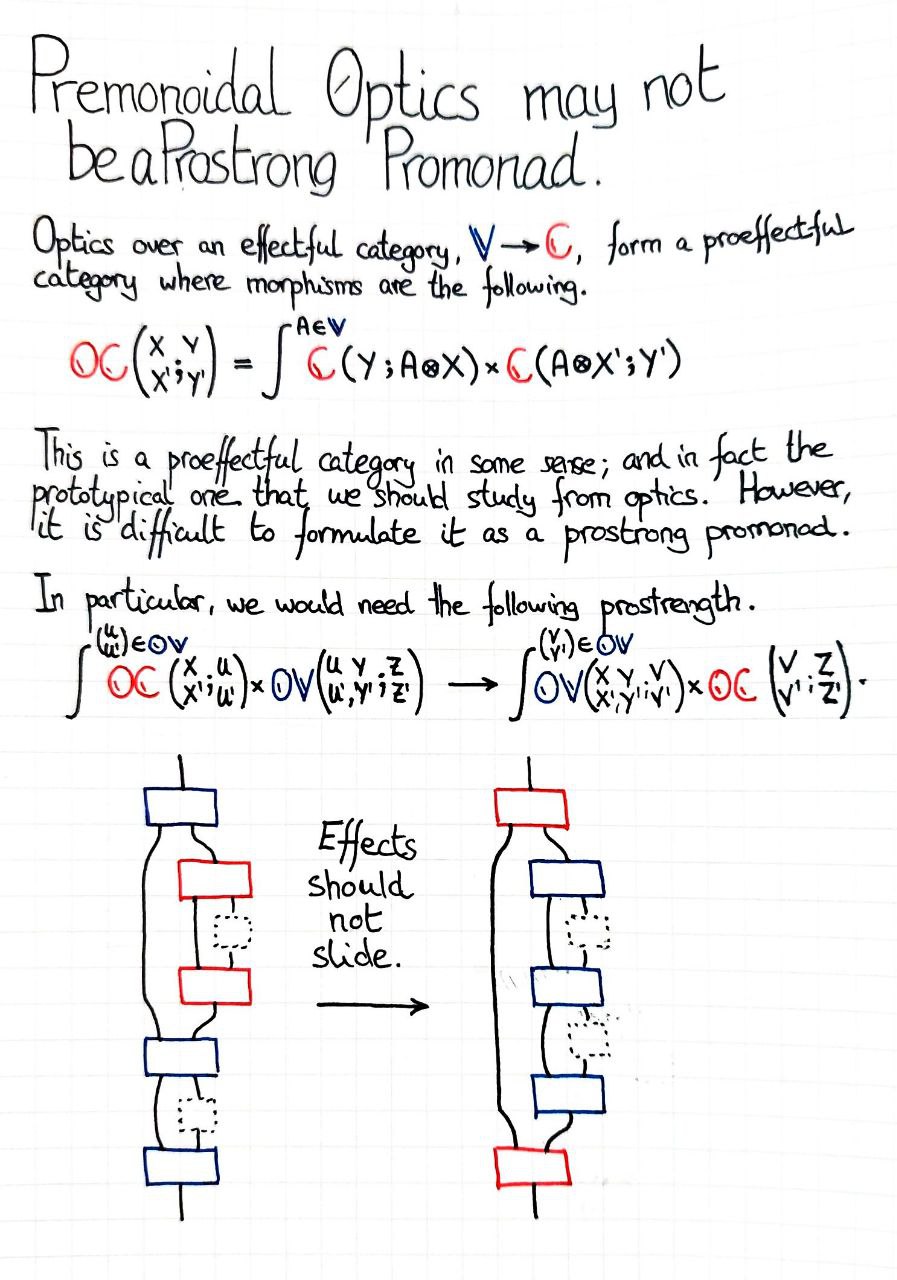 Premonoidal Optics may not
be a Prostrong Promonad.
Optics over an effectful category, V → C, form a proeffectful
category where morphisms are the following.
OC(X X' ; Y Y') = ∫^{A∈V} C(Y;A⊗X) × C(A⊗X';Y')
This is a proeffectful category in some sense; and in fact the
prototypical one that we should study from optics. However,
it is difficult to formulate it as a prostrong promonad.
In particular, we would need the following prostrength.
∫^{(U U')∈OV} OC(X X' ; U U') × OV(U U' , Y Y' ; Z Z') → ∫^{(V V')∈OV} OV(X X' , Y Y' ; V V') × OC(V V' ; Z Z').
Effects
should
not
slide.